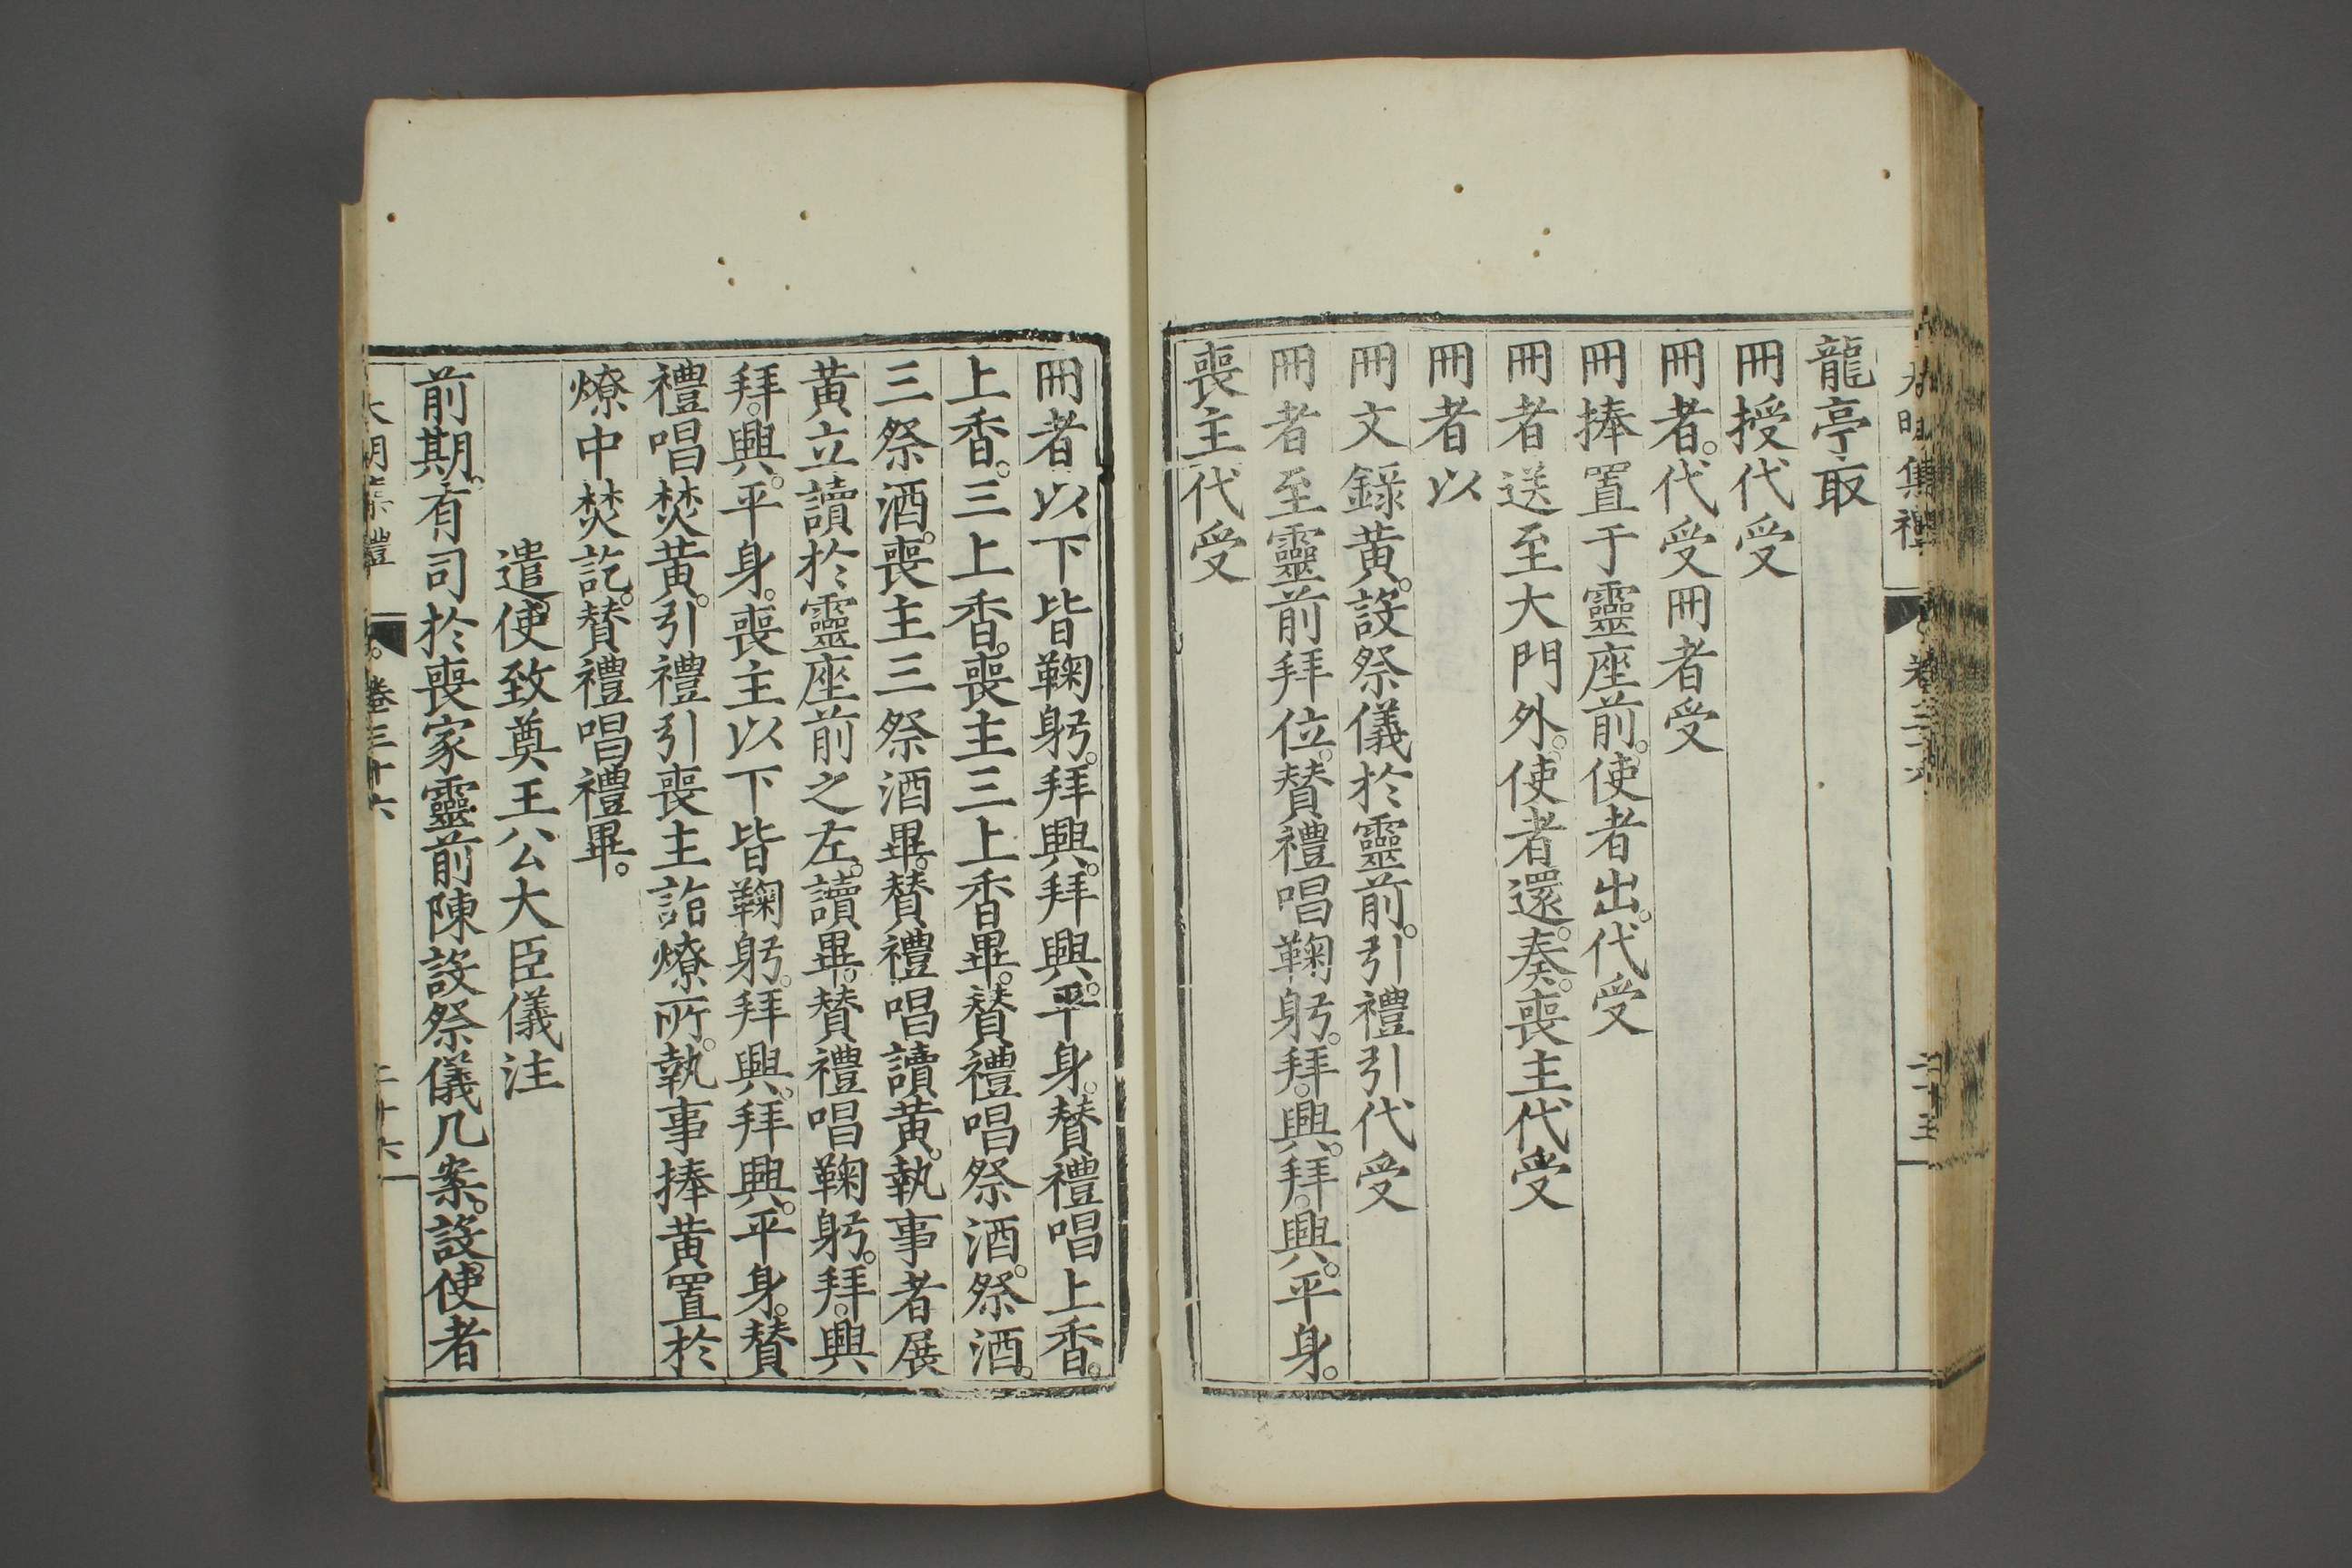 龍亭取
冊授代受
冊者。代受冊者受
冊捧置于靈座前。使者出。代受
冊者送至大門外。使者還。奏。喪主代受
冊者以
冊文錄黃。設祭儀於靈前。引禮引代受
冊者至靈前拜位。贊禮唱鞠躬。拜。興。拜。興。平身。
喪主代受
冊者以下皆鞠躬。拜。興。拜。興。平身。贊禮唱上香。
上香。三上香。喪主三上香畢。贊禮唱祭酒。祭酒。
三祭酒。喪主三祭酒畢。贊禮唱讀黃。執事者展
黃立讀於靈座前之左。讀畢。贊禮唱鞠躬。拜。興
拜。興。平身。喪主以下皆鞠躬。拜。興。拜。興。平身。贊
禮唱焚黃。引禮引喪主詣燎所。執事捧黃置於
燎中焚訖。贊禮唱禮畢。
遣使致奠王公大臣儀注
前期。有司於喪家靈前陳設祭儀几案。設使者
大明集禮 卷三十六 二十六